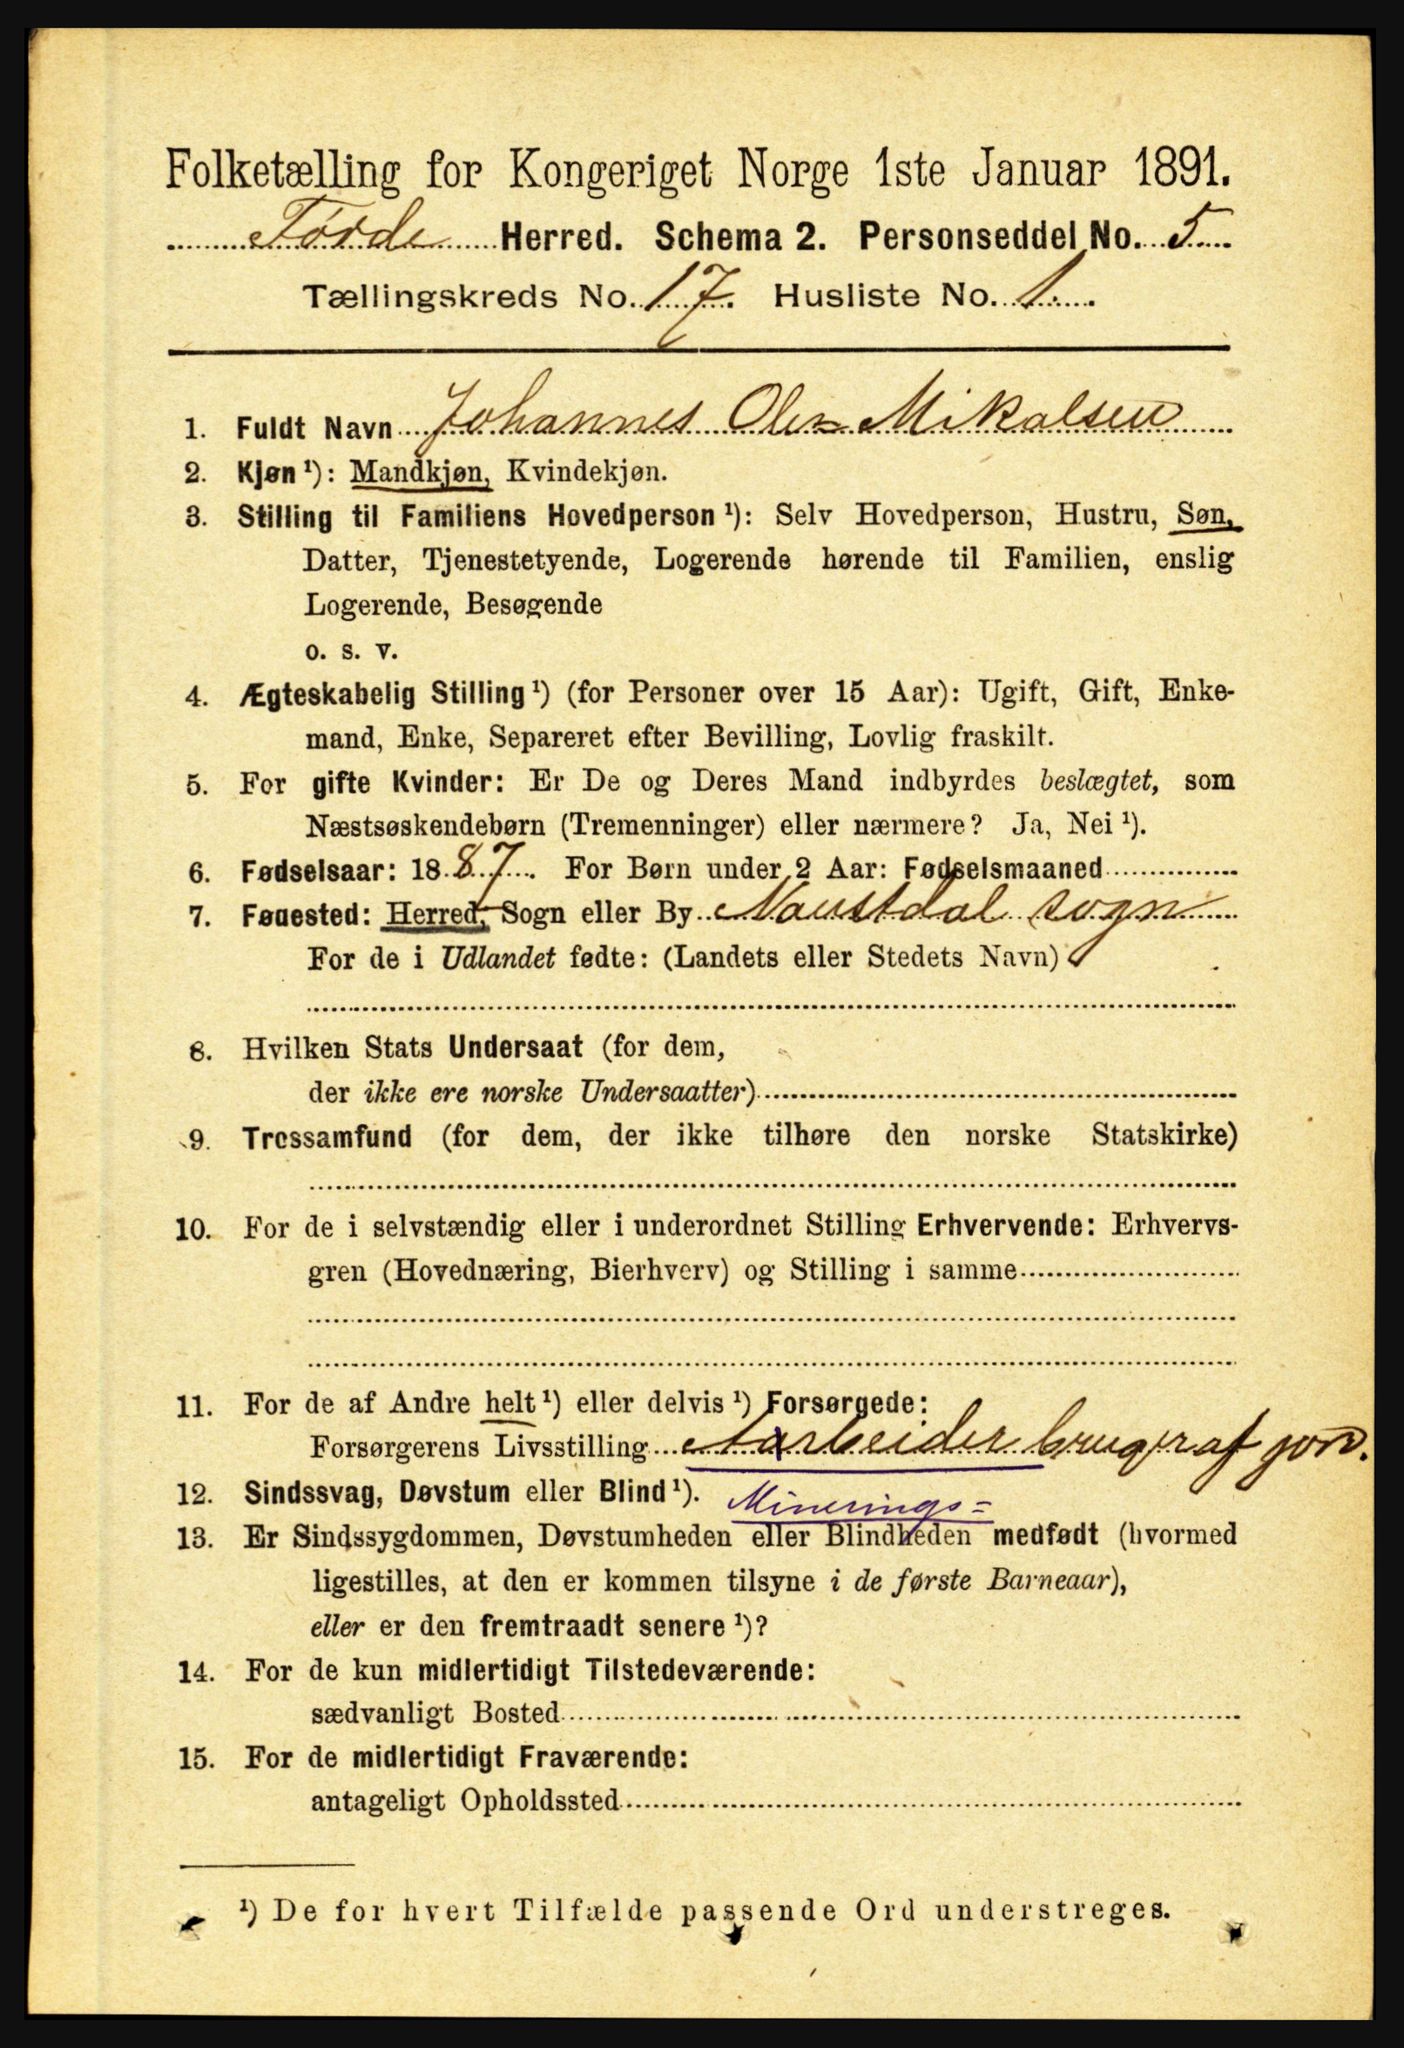 Folketælling for Kongeriget Norge 1ste Januar 1891.
Førde Herred. Schema 2. Personseddel No. 5
Tællingskreds No. 17. Husliste No. 1.
1. Fuldt Navn Johannes Olen Mikalsen
2. Kjøn ¹): Mandkjøn, Kvindekjøn.
3. Stilling til Familiens Hovedperson ¹): Selv Hovedperson, Hustru, Søn,
Datter, Tjenestetyende, Logerende hørende til Familien, enslig
Logerende, Besøgende
o. s. v.
4. Ægteskabelig Stilling ¹) (for Personer over 15 Aar): Ugift, Gift, Enke-
mand, Enke, Separeret efter Bevilling, Lovlig fraskilt.
5. For gifte Kvinder: Er De og Deres Mand indbyrdes beslægtet, som
Næstsøskendebørn (Tremenninger) eller nærmere? Ja, Nei ¹).
6. Fødselsaar: 1887. For Børn under 2 Aar: Fødselsmaaned
7. Fødested: Herred, Sogn eller By Naustdal sogn
For de i Udlandet fødte: (Landets eller Stedets Navn)
8. Hvilken Stats Undersaat (for dem,
der ikke ere norske Undersaatter)
9. Trossamfund (for dem, der ikke tilhøre den norske Statskirke)
10. For de i selvstændig eller i underordnet Stilling Erhvervende: Erhvervs-
gren (Hovednæring, Bierhverv) og Stilling i samme
11. For de af Andre helt ¹) eller delvis ¹) Forsørgede:
Forsørgerens Livsstilling Aarbeider bruger af jord.
12. Sindssvag, Døvstum eller Blind ¹). Minerings-
13. Er Sindssygdommen, Døvstumheden eller Blindheden medfødt (hvormed
ligestilles, at den er kommen tilsyne i de første Barneaar),
eller er den fremtraadt senere ¹)?
14. For de kun midlertidigt Tilstedeværende:
sædvanligt Bosted
15. For de midlertidigt Fraværende:
antageligt Opholdssted
¹) De for hvert Tilfælde passende Ord understreges.